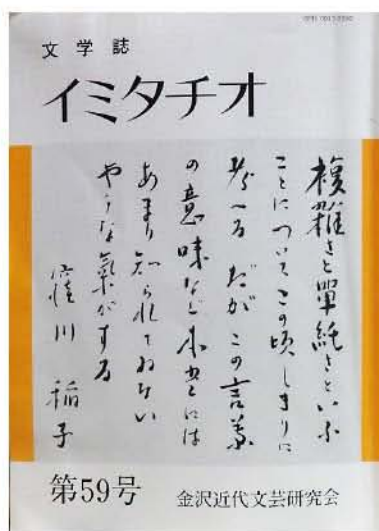 文学誌
イミタチオ
複雜さと單純さといふ
ことについてこの頃しきりに
考へる だがこの言葉
の意味など本当には
あまり知られてゐない
やうな氣がする
窪川稲子
第59号
金沢近代文芸研究会